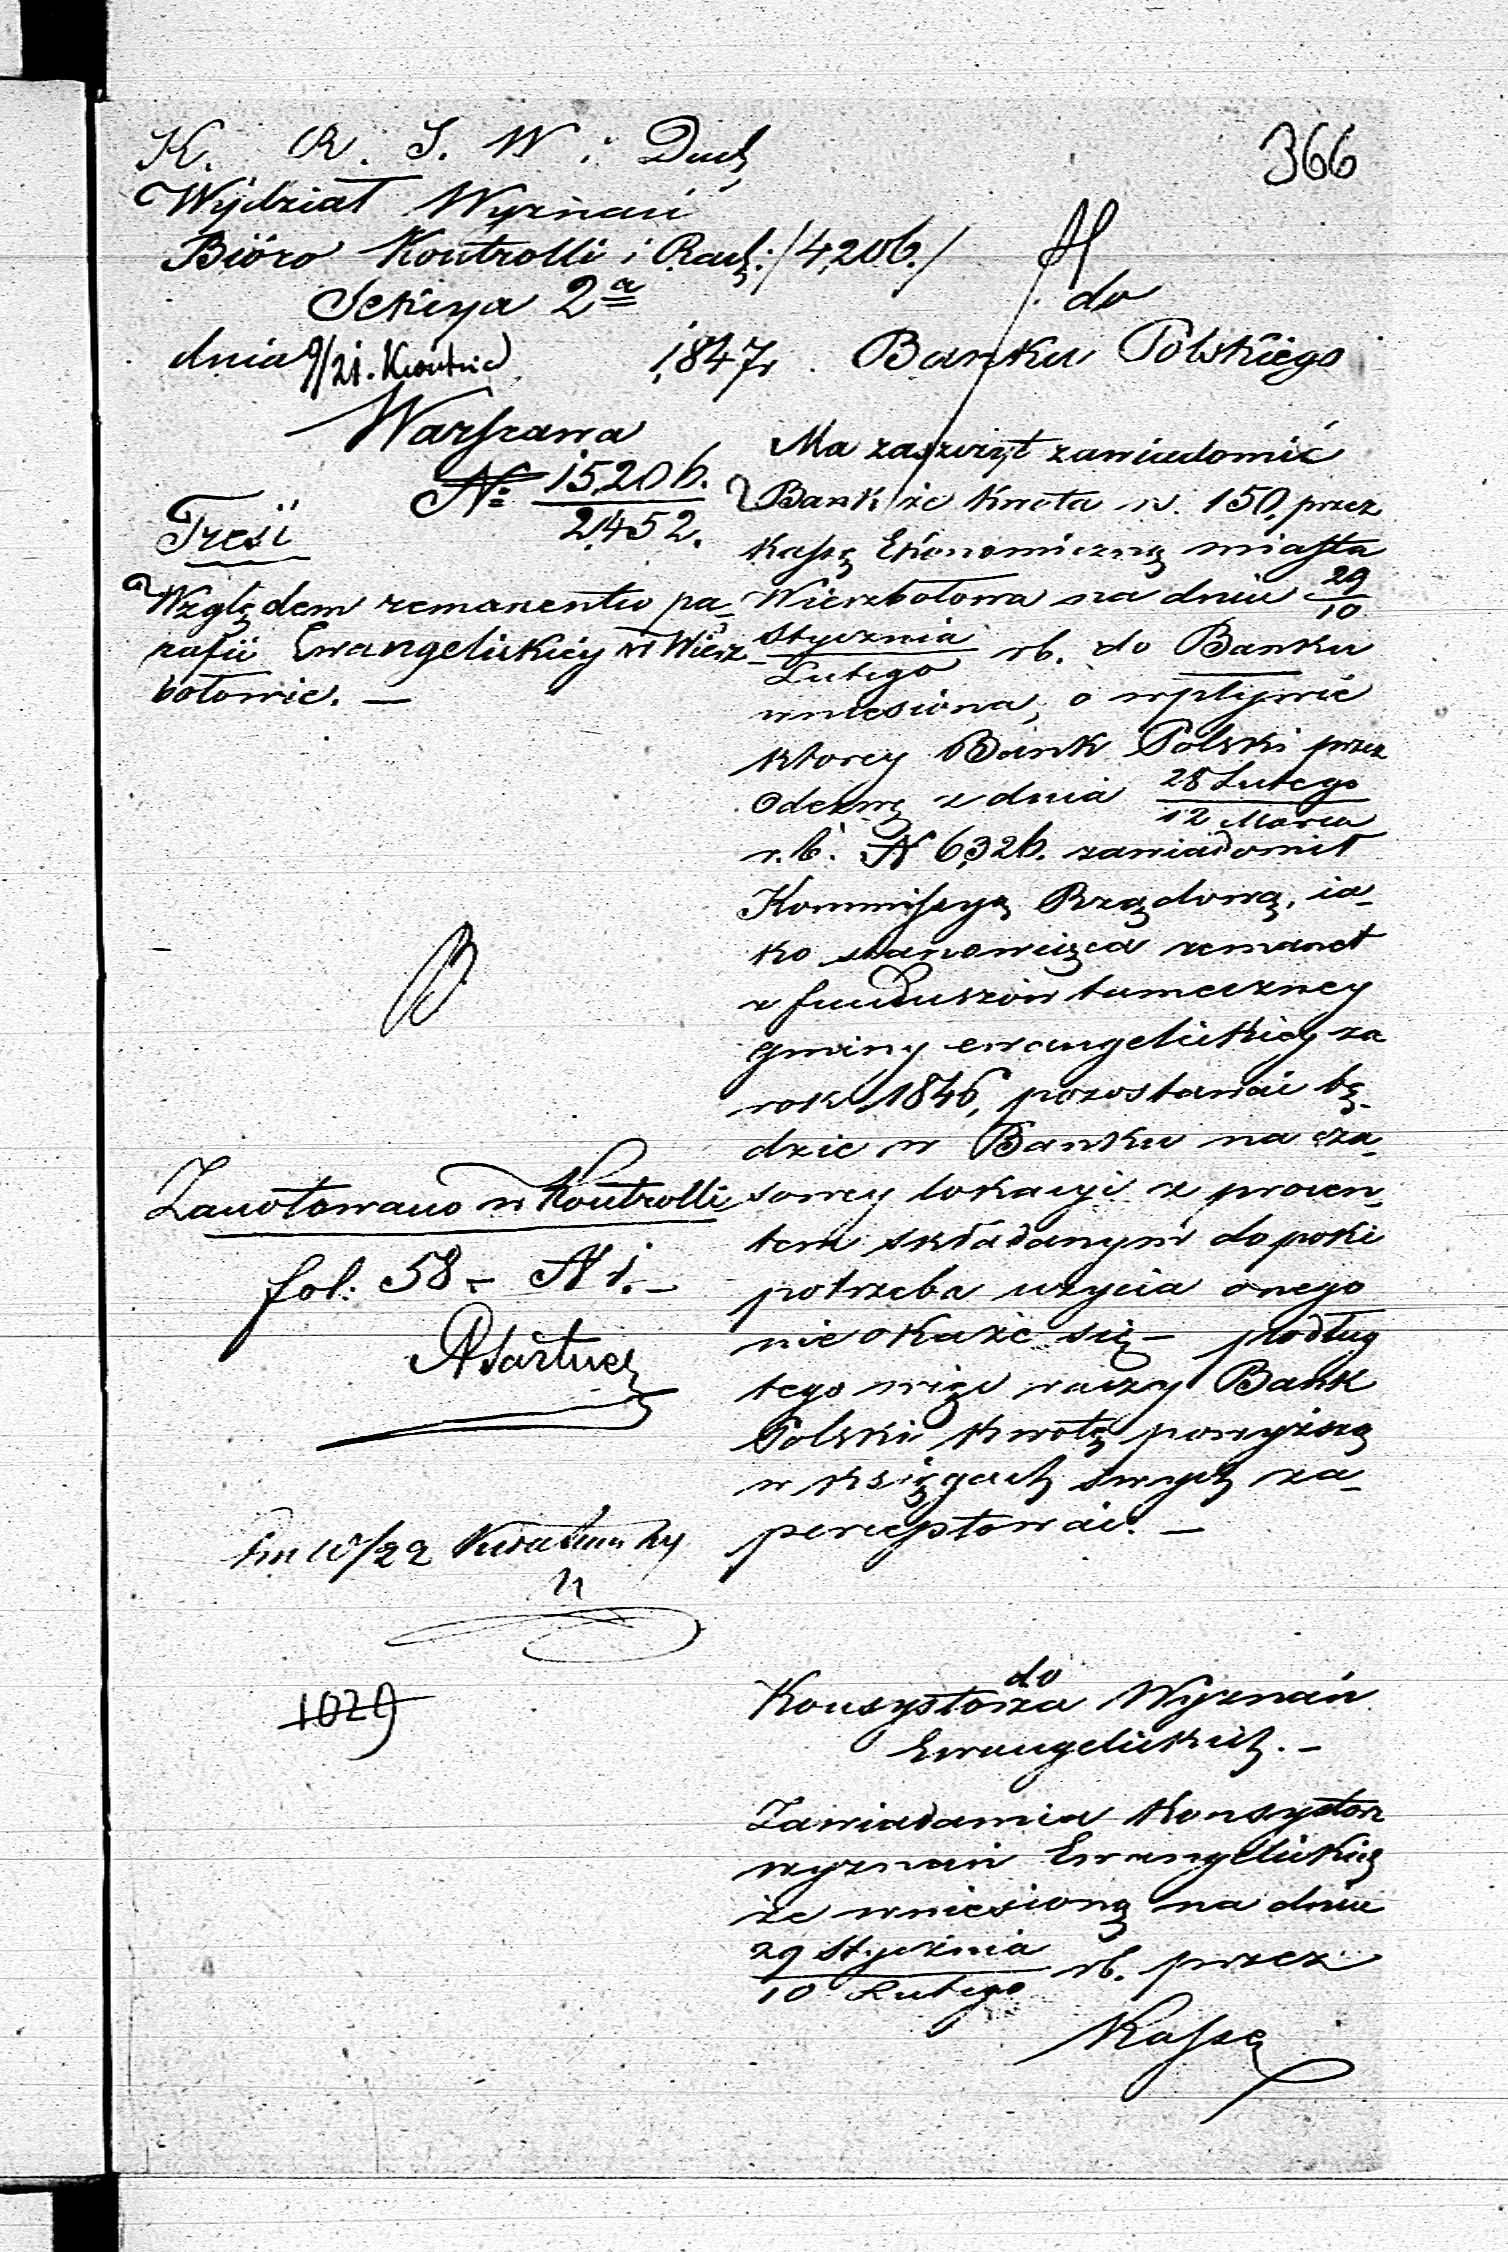 366
K. R. S. W. i Duch
Wydział Wyznań
Biöro Kontrolli i Rach: /4,206./
Sekcya 2a
dnia 9/21. Kwietnia 1847 r.
Warszawa
No 15206.
2,452.
Treść
Względem remanentu pa-
rafii Ewangelickiéy w Wierz-
bołowie. —
Zanotowano w Kontrolli
fol: 58 – N 1. –
dn 10/22 Kwietnia
1029
do
Banku Polskiego
Ma zaszczyt zawiadomić
Bank że kwota rs. 150, przez
Kassę Ekonomiczną miasta
Wierzbołowa na dniu 29/10
Stycznia/Lutego rb. do Banku
wniesiona, o wpływie
ktorey Bank Polski przez
Odezwę z dnia 28 Lutego/12 Marca
r. b. N 6,326. zawiadomił
Kommissyą Rządową, ia-
ko stanowiąca remanet
z funduszów tameczney
gminy ewangelickiey za
rok 1846, pozostawać bę-
dzie w Banku na cza-
sowey lokacyi z procen-
tem składanym dopoki
potrzeba użycia onego
nie okaże się – podług
tego więc raczy Bank
Polski kwotę powyższą
w księgach swych za-
perceptować. —
do
Konsystorza Wyznań
Ewangelickich. –
Zawiadamia Konsystorz
wyznań Ewangelickich
że wniesioną na dniu
29 Stycznia/10 Lutego rb. przez
Kassę